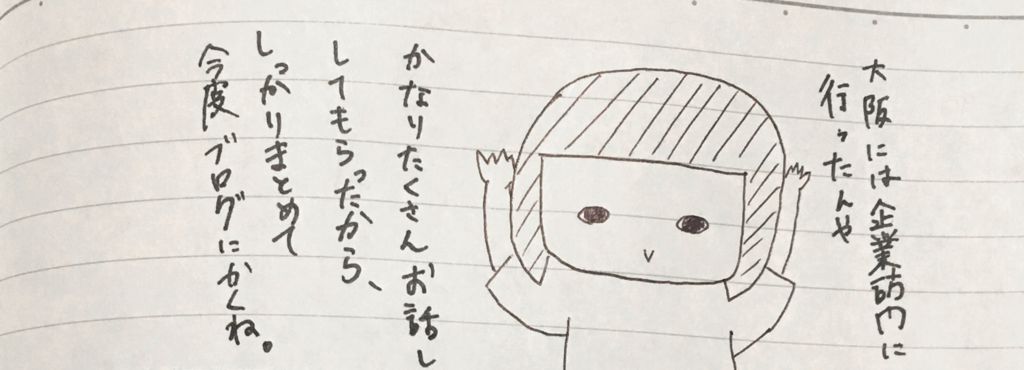 大阪には企業訪問に
行ったんや
かなりたくさんお話し
してもらったから、
しっかりまとめて
今度ブログにかくね。